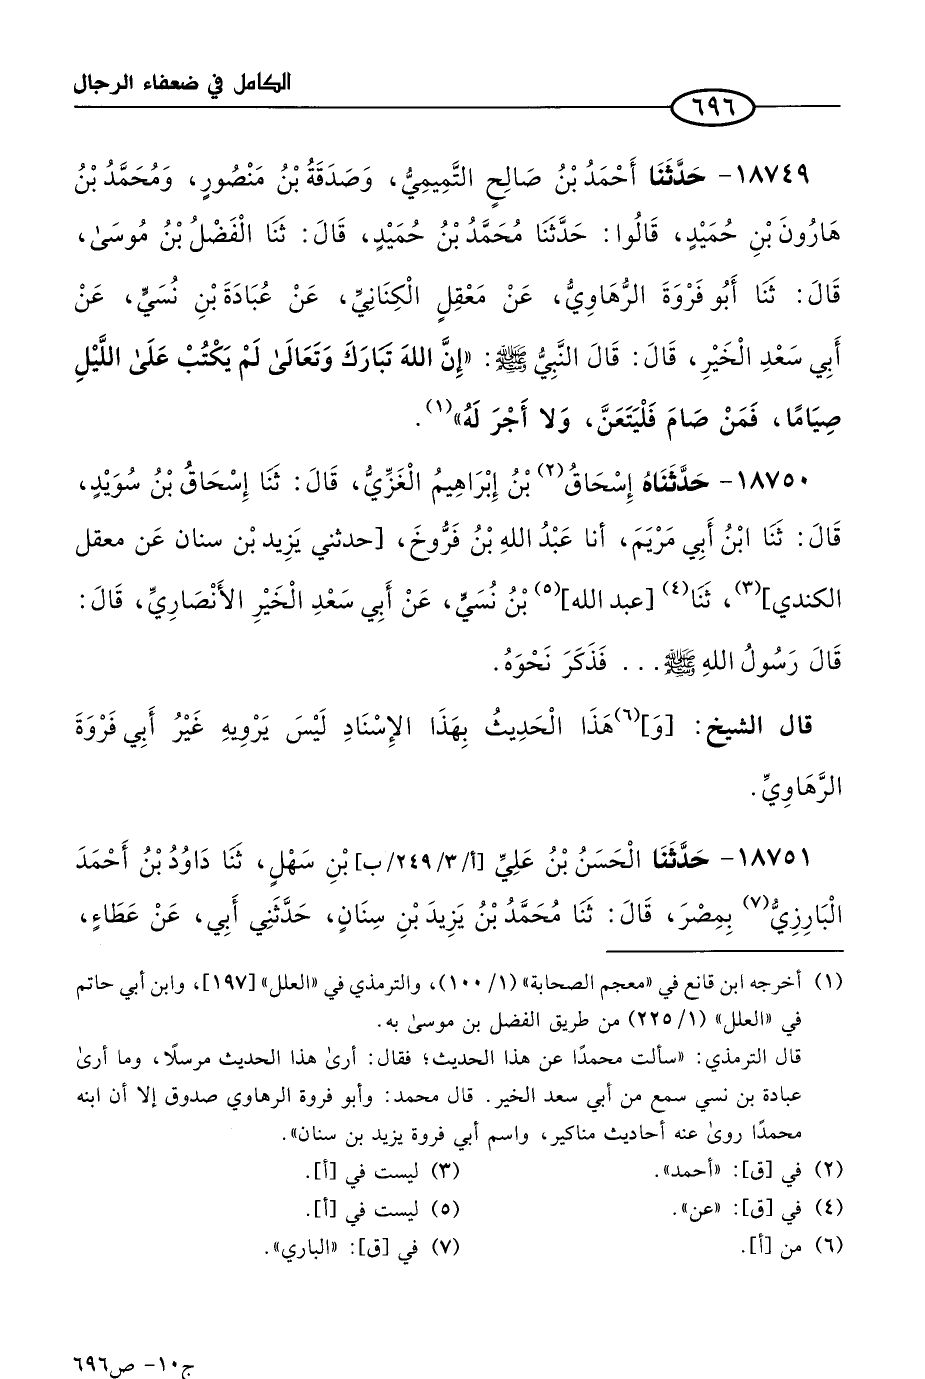 الكامل في ضعفاء الرجال
٦٩٦
١٨٧٤٩- حَدَّثَنَا أَحْمَدُ بْنُ صَالِحٍ التَّمِيمِيُّ، وَصَدَقَةُ بْنُ مَنْصُورٍ، وَمُحَمَّدُ بْنُ
هَارُونَ بْنِ حُمَيْدٍ، قَالُوا: حَدَّثَنَا مُحَمَّدُ بْنُ حُمَيْدٍ، قَالَ: ثَنَا الْفَضْلُ بْنُ مُوسَىٰ،
قَالَ: ثَنَا أَبُو فَرْوَةَ الرُّهَاوِيُّ، عَنْ مَعْقِلٍ الْكِنَانِيِّ، عَنْ عُبَادَةَ بْنِ نُسَيٍّ، عَنْ
أَبِي سَعْدِ الْخَيْرِ، قَالَ: قَالَ النَّبِيُّ ﷺ: «إِنَّ اللهَ تَبَارَكَ وَتَعَالَىٰ لَمْ يَكْتُبْ عَلَىٰ اللَّيْلِ
صِيَامًا، فَمَنْ صَامَ فَلْيَتَعَنَّ، وَلا أَجْرَ لَهُ»(١).
١٨٧٥٠- حَدَّثَنَاهُ إِسْحَاقُ(٢) بْنُ إِبْرَاهِيمُ الْغَزِّيُّ، قَالَ: ثَنَا إِسْحَاقُ بْنُ سُوَيْدٍ،
قَالَ: ثَنَا ابْنُ أَبِي مَرْيَمَ، أنا عَبْدُ اللهِ بْنُ فَرُّوخَ، [حدثني يَزِيد بْن سنان عَن معقل
الكندي](٣)، ثَنَا(٤) [عبد الله](٥) بْنُ نُسَيٍّ، عَنْ أَبِي سَعْدِ الْخَيْرِ الأَنْصَارِيِّ، قَالَ:
قَالَ رَسُولُ اللهِ ﷺ... فَذَكَرَ نَحْوَهُ.
قال الشيخ: [وَ](٦)هَذَا الْحَدِيثُ بِهَذَا الإِسْنَادِ لَيْسَ يَرْوِيهِ غَيْرُ أَبِي فَرْوَةَ
الرَّهَاوِيِّ.
١٨٧٥١- حَدَّثَنَا الْحَسَنُ بْنُ عَلِيِّ [أ/٢٤٩/٣/ب] بْنِ سَهْلٍ، ثَنَا دَاوُدُ بْنُ أَحْمَدَ
الْبَارِزِيُّ(٧) بِمِصْرَ، قَالَ: ثَنَا مُحَمَّدُ بْنُ يَزِيدَ بْنِ سِنَانٍ، حَدَّثَنِي أَبِي، عَنْ عَطَاءٍ،
(١) أخرجه ابن قانع في «معجم الصحابة» (١/ ١٠٠)، والترمذي في «العلل» [١٩٧]، وابن أبي حاتم
في «العلل» (١/ ٢٢٥) من طريق الفضل بن موسىٰ به.
قال الترمذي: «سألت محمدًا عن هذا الحديث؛ فقال: أرىٰ هذا الحديث مرسلًا، وما أرىٰ
عبادة بن نسي سمع من أبي سعد الخير. قال محمد: وأبو فروة الرهاوي صدوق إلا أن ابنه
محمدًا روىٰ عنه أحاديث مناكير، واسم أبي فروة يزيد بن سنان».
(٢) في [ق]: «أحمد». (٣) ليست في [أ].
(٤) في [ق]: «عن». (٥) ليست في [أ].
(٦) من [أ]. (٧) في [ق]: «الباري».
ج١٠- ص٦٩٦